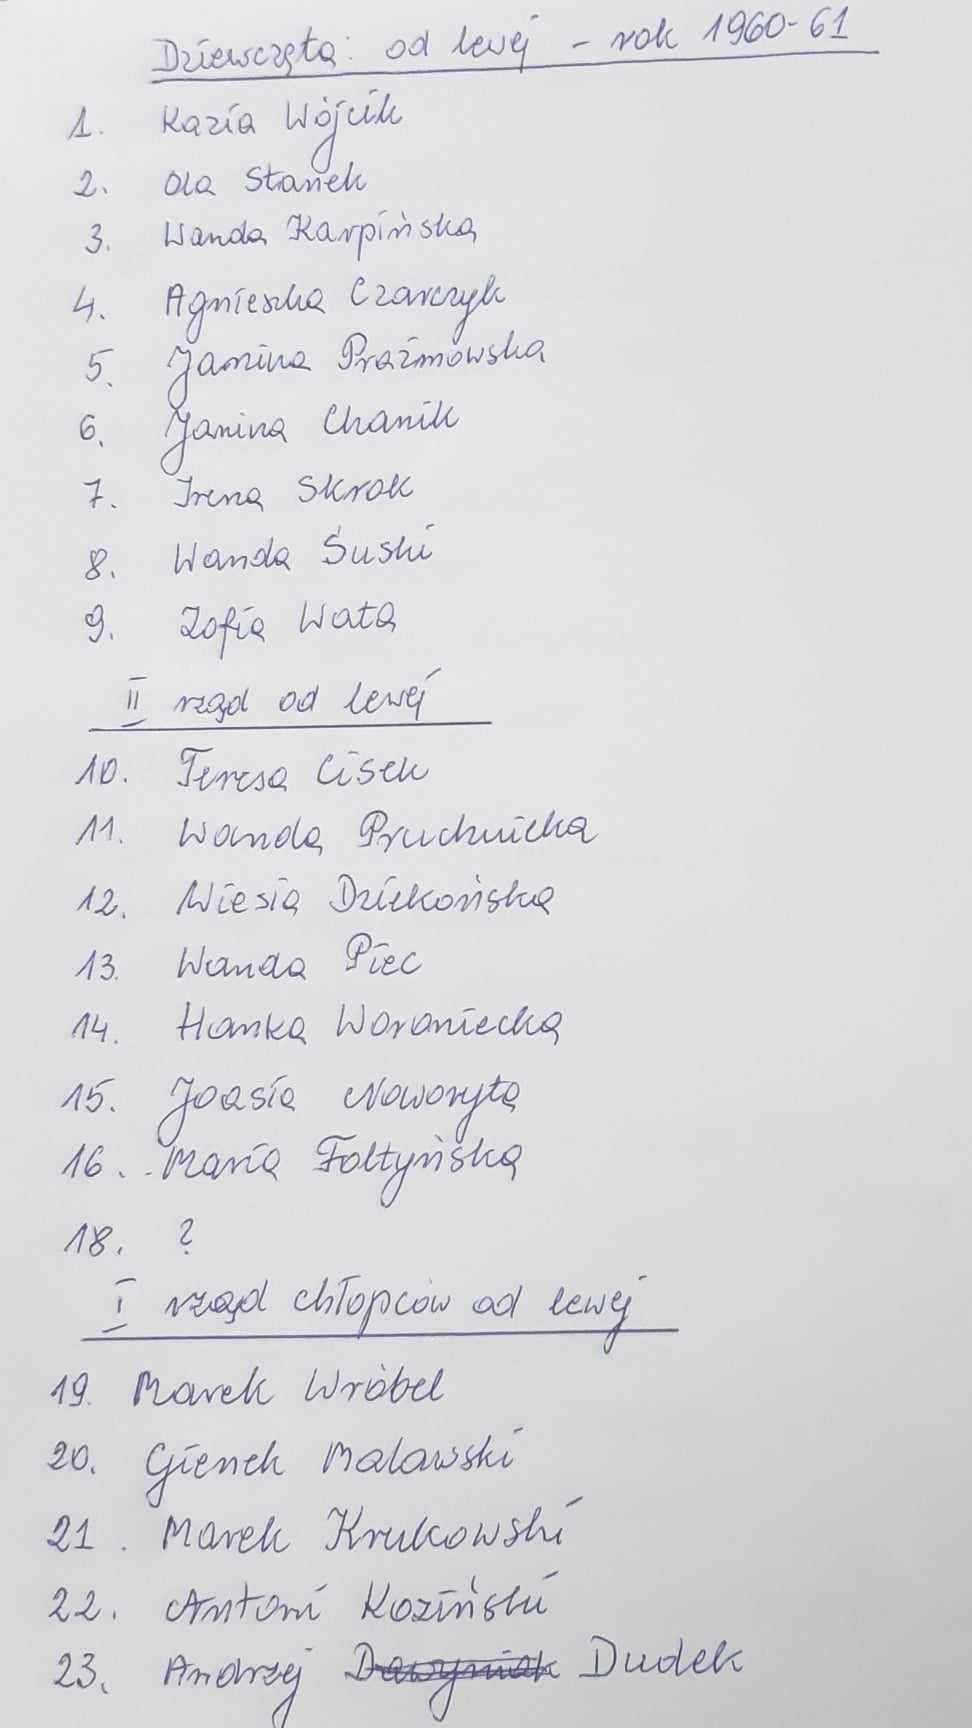 Dziewczęta: od lewej - rok 1960-61
1. Kazia Wójcik
2. Ola Stanek
3. Wanda Karpińska
4. Agnieszka Czarczyk
5. Janina Praźmowska
6. Janina Chanik
7. Irena Skrok
8. Wanda Suski
9. Zofia Wata
II rząd od lewej
10. Teresa Cisek
11. Wanda Pruchnicka
12. Wiesia Dziekońska
13. Wanda Piec
14. Hanka Woroniecka
15. Joasia Noworyta
16. Maria Fołtyńska
18. ?
I rząd chłopców od lewej
19. Marek Wróbel
20. Gienek Malawski
21. Marek Krukowski
22. Antoni Koziński
23. Andrzej Dudek